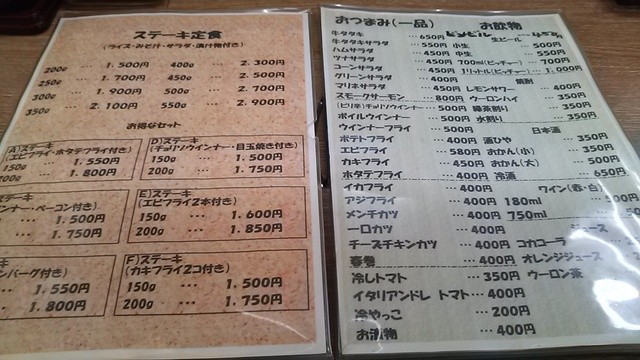 ステーキ定食
(ライス・みそ汁・サラダ・漬け物付き)
200g … 1.500円 400g … 2.300円
250g … 1.700円 450g … 2.500円
300g … 1.900円 500g … 2.700円
350g … 2.100円 550g … 2.900円
お得なセット
A)ステーキ
(エビフライ・ホタテフライ付き)
150g … 1.550円
200g … 1.800円
D)ステーキ
(チョリソウインナー・目玉焼き付き)
150g … 1.500円
200g … 1.750円
ンナー・ベーコン付き)
… 1.500円
… 1.750円
E)ステーキ
(エビフライ2本付き)
150g … 1.600円
200g … 1.850円
ンバーグ付き)
… 1.550円
… 1.800円
F)ステーキ
(カキフライ2コ付き)
150g … 1.500円
200g … 1.750円
おつまみ(一品)
牛タタキ …650円
牛タタキサラダ … 550円
ハムサラダ … 450円
ツナサラダ … 450円
コーンサラダ … 450円
グリーンサラダ … 400円
マリネサラダ … 450円
スモークサーモン … 800円
(ピリ辛)チョリソウインナー … 500円
ボイルウインナー … 500円
ウインナーフライ … 500円
ポテトフライ … 400円
エビフライ … 580円
カキフライ … 450円
ホタテフライ … 400円
イカフライ … 400円
アジフライ … 450円
メンチカツ … 400円
一口カツ … 400円
チーズチキンカツ … 400円
春巻 … 400円
冷しトマト … 350円
イタリアンドレ トマト … 400円
冷やっこ … 200円
お漬物 … 400円
お飲物
生ビール
小生 … 500円
中生 … 550円
700ml(ピッチャー) … 700円
1リットル(ピッチャー) … 1.000円
焼酎
レモンサワー … 400円
ウーロンハイ … 350円
緑茶割り … 350円
水割り … 350円
日本酒
酒ひや … 350円
おかん(小) … 350円
おかん(大) … 500円
冷酒 … 650円
ワイン(赤・白)
180ml
750ml
ジュース
コカコーラ
オレンジジュース
ウーロン茶